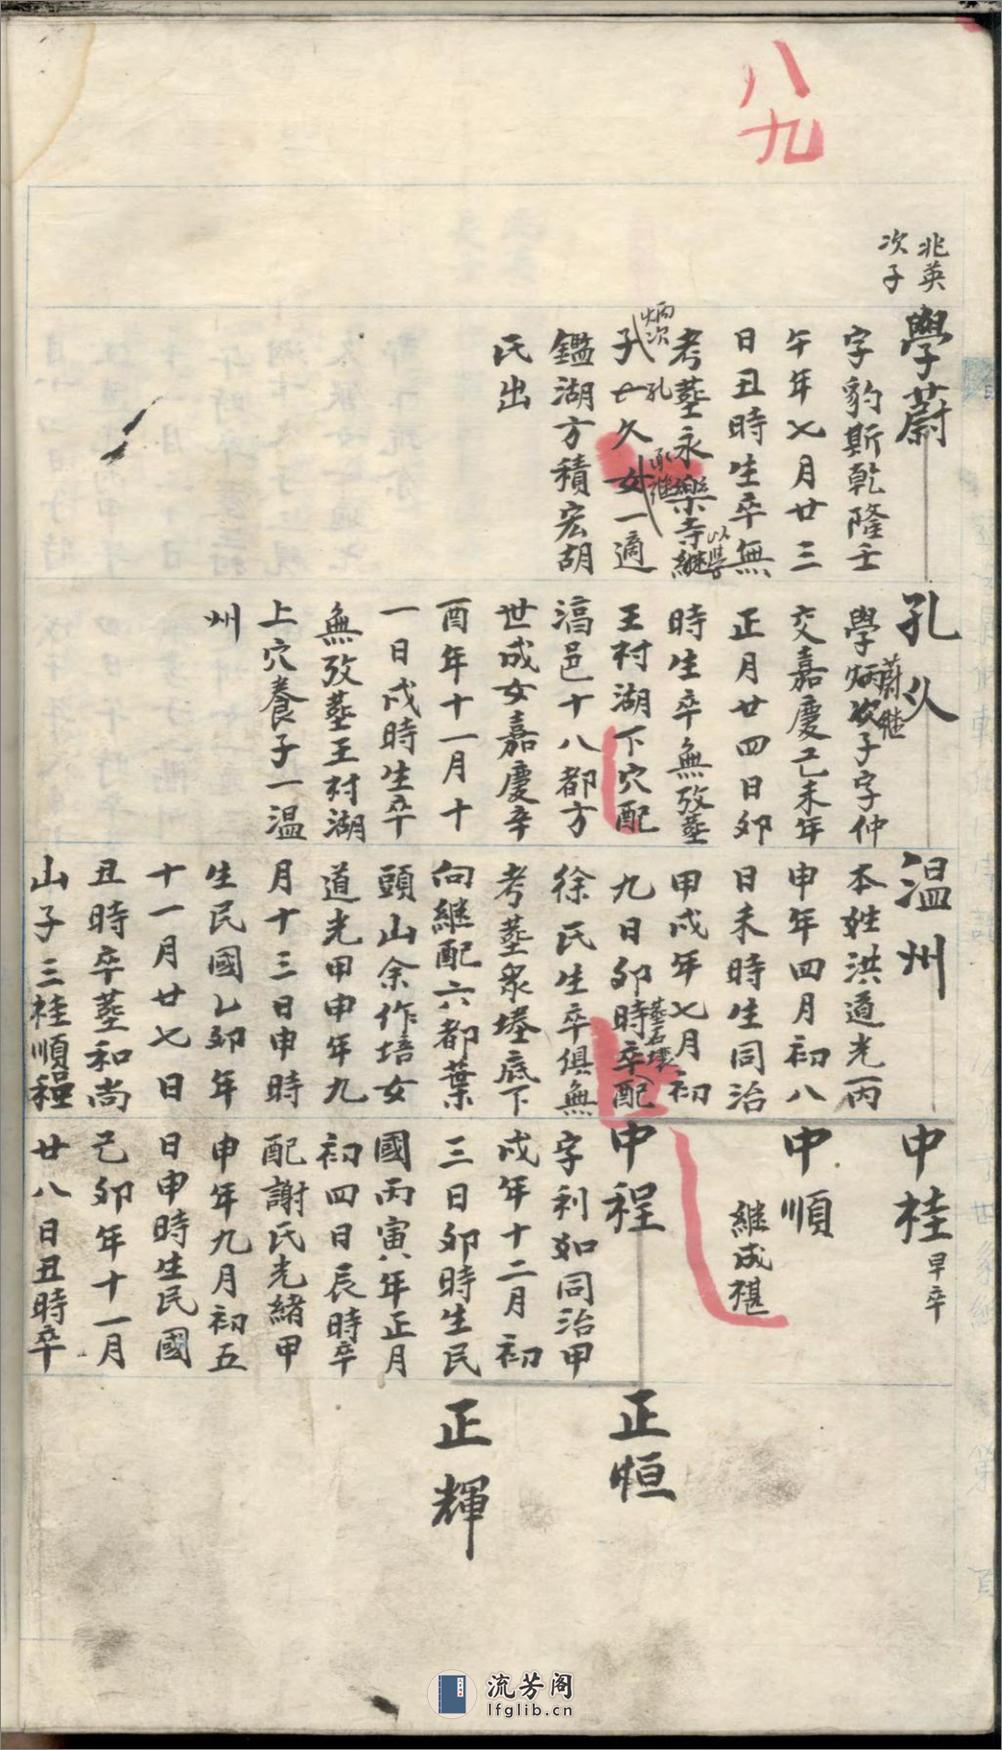 八九
兆英
次子
學蔚
字豹斯乾隆壬
午年七月廿三
日丑時生卒無
考塟永樂寺繼
以學
炳次
子孔
子七久女一適
承進
鑑湖方積宏胡
氏出
孔久
蔚継
學炳次子字仲
交嘉慶己未年
正月廿四日卯
時生卒無攷塟
王村湖下穴配
滈邑十八都方
世成女嘉慶辛
酉年十一月十
一日戌時生卒
無攷塟王村湖
上穴養子一温
州
温州
本姓洪道光丙
申年四月初八
日未時生同治
甲戌年七月初
塟石壈
九日卯時卒配
徐氏生卒俱無
考塟衆塝底下
向継配六都葉
頭山余作培女
道光甲申年九
月十三日申時
生民國乙卯年
十一月廿七日
丑時卒塟和尚
山子三桂順程
中桂
早卒
中順
継成祺
中程
字利如同治甲
戌年十二月初
三日卯時生民
國丙寅年正月
初四日辰時卒
配謝氏光緒甲
申年九月初五
日申時生民國
己卯年十一月
廿八日丑時卒
正恒
正輝
流芳阁
lfglib.cn